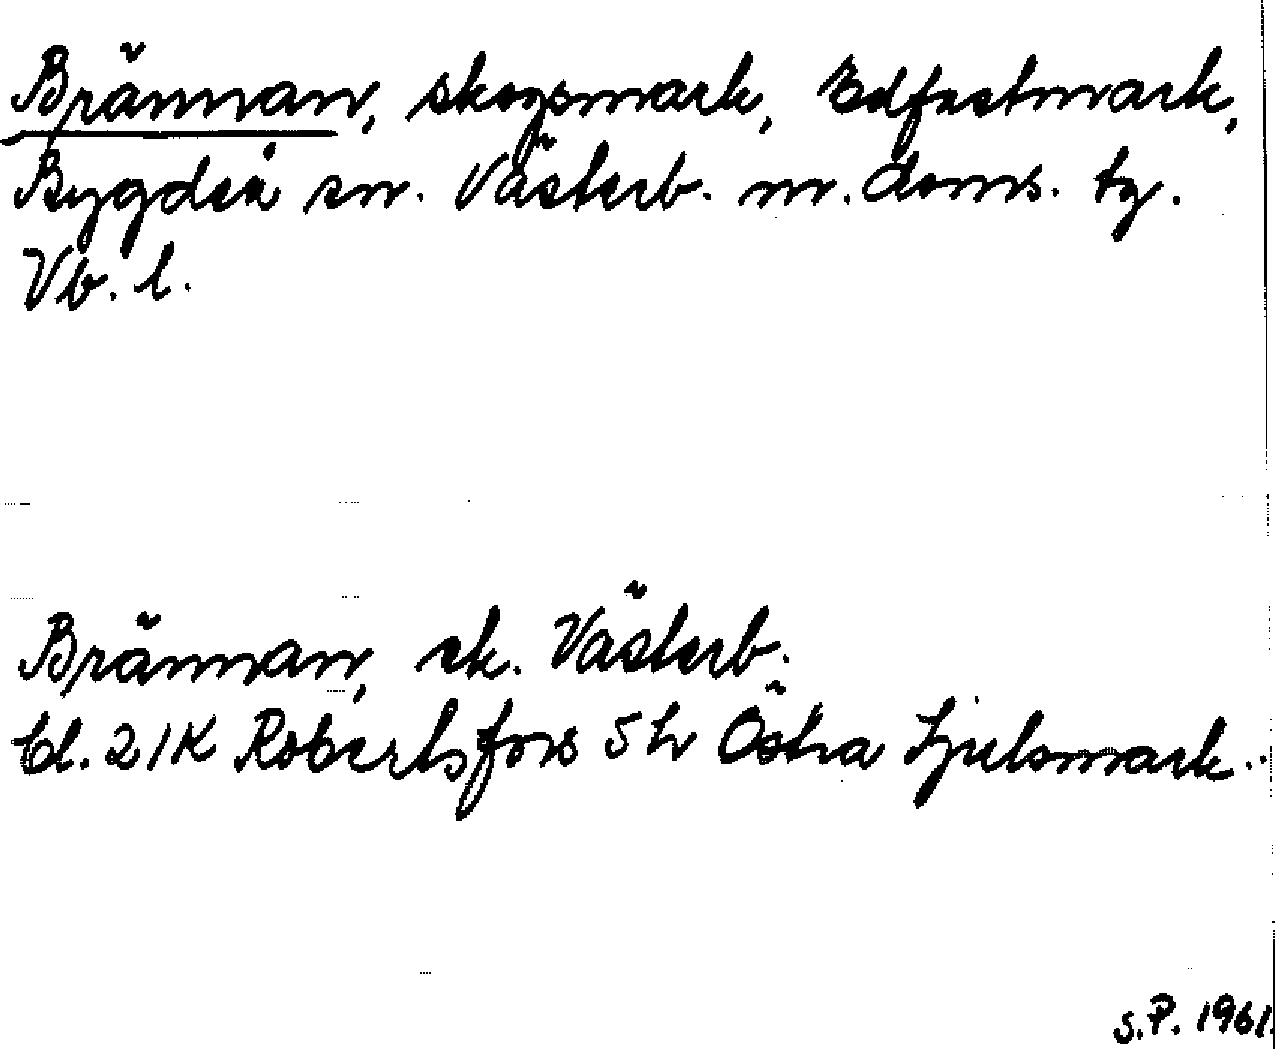 Brännan, skogsmark, Edfastmark,
Bygdeå sn. Västerb. n. doms. tg.
Vb. l.
Brännan, ek. Västerb.
bl. 21K Robertsfors 5 h Östra Ljulsmark.
S.P. 1961.